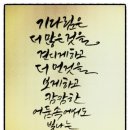 기다림은
더 많은 것을
견디게 하고
더 먼 것을
보게 하고
캄캄한
어둠 속에서도
빛나는